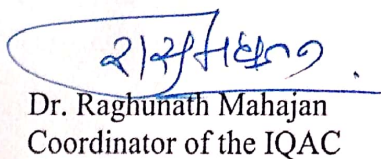 Dr. Raghunath Mahajan
Coordinator of the IQAC